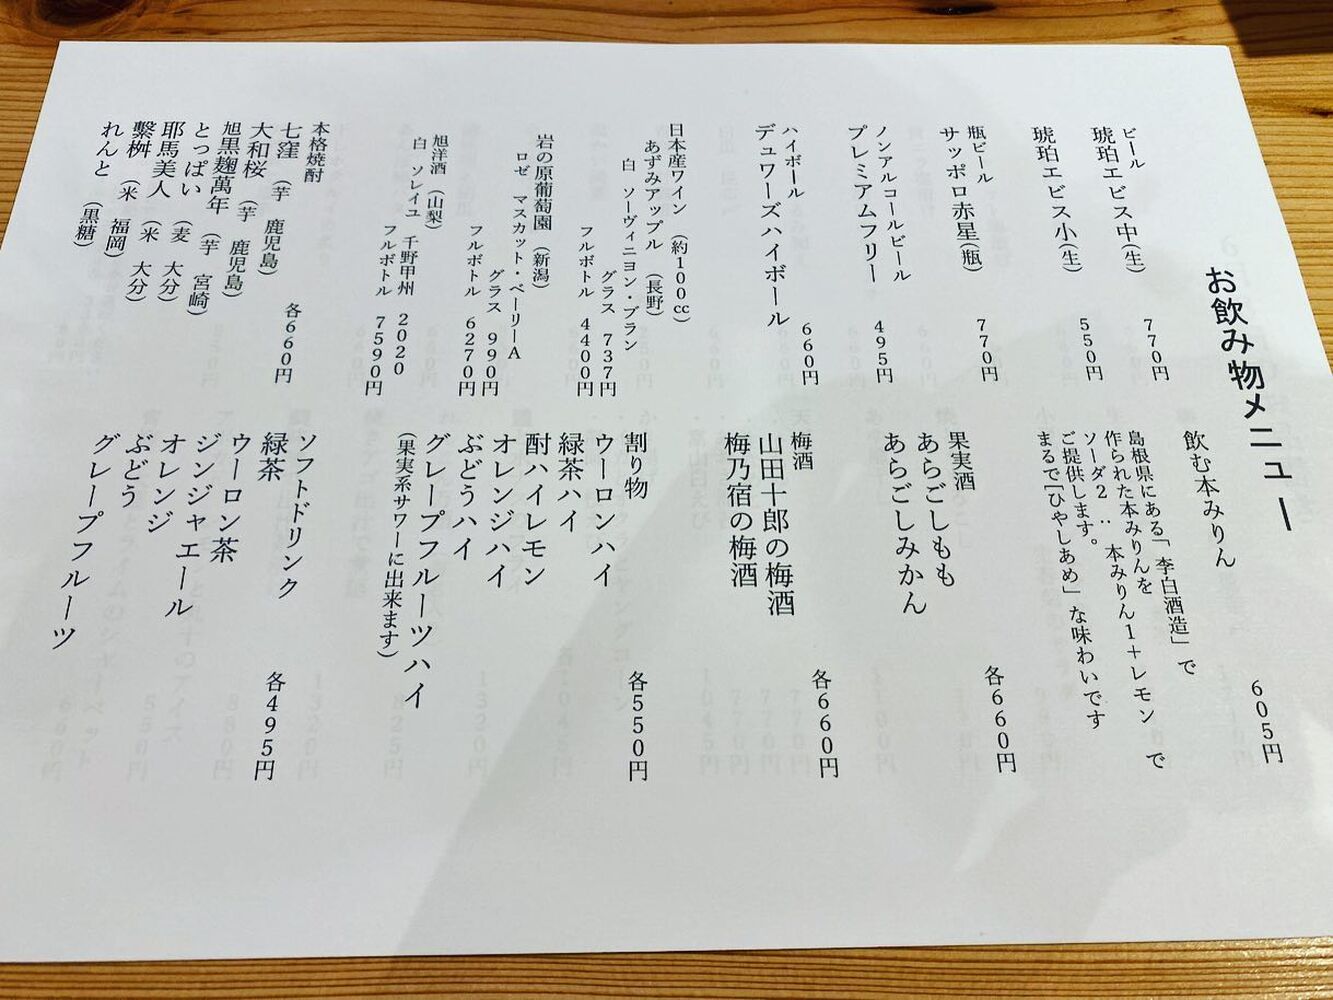 お飲み物メニュー
ビール
琥珀エビス中(生) 770円
琥珀エビス小(生) 550円
瓶ビール
サッポロ赤星(瓶) 770円
ノンアルコールビール
プレミアムフリー 495円
ハイボール
デュワーズハイボール 660円
日本産ワイン (約100cc)
あずみアップル (長野)
白 ソーヴィニヨン・ブラン
グラス 737円
フルボトル 4400円
岩の原葡萄園 (新潟)
ロゼ マスカット・ベーリーA
グラス 990円
フルボトル 6270円
旭洋酒 (山梨)
白 ソレイユ 千野甲州 2020
フルボトル 7590円
本格焼酎 各660円
七窪 (芋 鹿児島)
大和桜 (芋 鹿児島)
旭黒麹萬年 (芋 宮崎)
とっぱい (麦 大分)
耶馬美人 (米 大分)
繫桝 (米 福岡)
れんと (黒糖)
飲む本みりん 605円
島根県にある「李白酒造」で
作られた本みりんを
ソーダ2:本みりん1+レモン で
ご提供します。
まるで「ひやしあめ」な味わいです
果実酒 各660円
あらごしもも
あらごしみかん
梅酒 各660円
山田十郎の梅酒
梅乃宿の梅酒
割り物 各550円
ウーロンハイ
緑茶ハイ
酎ハイレモン
オレンジハイ
ぶどうハイ
グレープフルーツハイ
(果実系サワーに出来ます)
ソフトドリンク 各495円
緑茶
ウーロン茶
ジンジャエール
オレンジ
ぶどう
グレープフルーツ